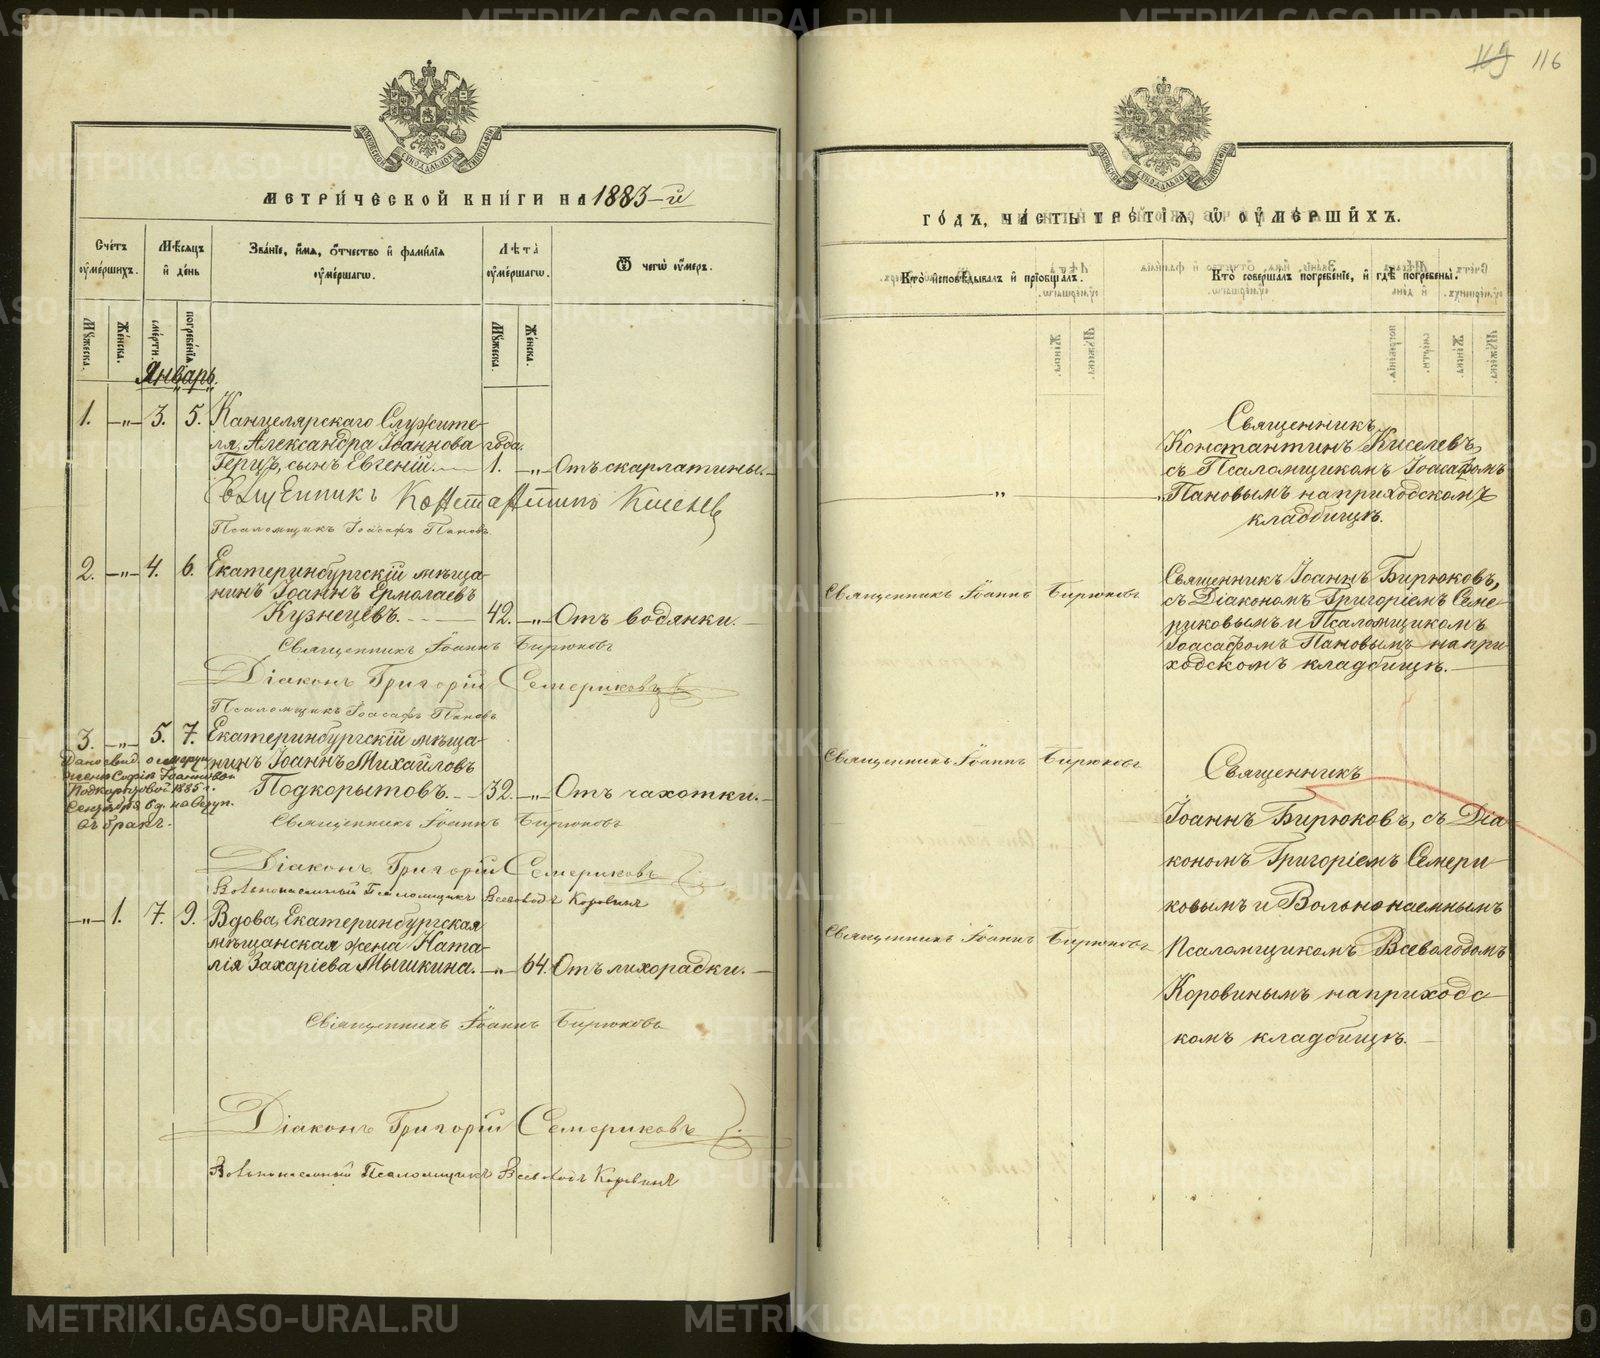 119 116
МЕТРИЧЕСКОЙ КНИГИ НА 1883-й
Счетъ умершихъ.
Мѣсяцъ и день
Званіе, имя, отчество и фамилія умершагω.
Лѣта умершагω.
Ѿ чегω умеръ.
Мужеска.
Женска.
смерти.
погребенія
Мужеска.
Женска.
Январь.
1. —„— 3. 5. Канцелярскаго Служите-
ля, Александра Іоаннова года.
Герцъ, сынъ Евгеній. 1. —„— Отъ скарлатины.
Священникъ Константинъ Киселевъ
Псаломщикъ Іоасафъ Пановъ
2. —„— 4. 6. Екатеринбургскій мѣща-
нинъ Іоаннъ Ермолаевъ
Кузнецовъ. 42. —„— Отъ водянки.
Священникъ Іоаннъ Бирюковъ
Діаконъ Григорій Семериковъ
Псаломщикъ Іоасафъ Пановъ
3. —„— 5. 7. Екатеринбургскій мѣща-
нинъ Іоаннъ Михайловъ
Подкорытовъ. 32. —„— Отъ чахотки.
Дано свид. о смерти
жены Софіи Іоанновой
1885 г.
Сентября 6 д. на вступ.
въ бракъ.
Священникъ Іоаннъ Бирюковъ
Діаконъ Григорій Семериковъ
Вольнонаемный Псаломщикъ Всеволодъ Коровинъ
—„— 1. 7. 9. Вдова, Екатеринбургская
мѣщанская жена Ната-
лія Захаріева Мышкина. —„— 64. Отъ лихорадки.
Священникъ Іоаннъ Бирюковъ
Діаконъ Григорій Семериковъ
Вольнонаемный Псаломщикъ Всеволодъ Коровинъ
ГОДЪ, ЧАСТЬ ТРЕТІЯ, Ѡ УМЕРШИХЪ.
Кто исповѣдывалъ и пріобщалъ.
Кто совершалъ погребеніе, и гдѣ погребены.
Священникъ
Константинъ Киселевъ,
съ Псаломщикомъ Іоасафомъ
Пановымъ на приходскомъ
кладбищѣ.
Священникъ Іоаннъ Бирюковъ
Священникъ Іоаннъ Бирюковъ,
съ Діакономъ Григоріемъ Семе-
риковымъ и Псаломщикомъ
Іоасафомъ Пановымъ на при-
ходскомъ кладбищѣ.
Священникъ Іоаннъ Бирюковъ
Священникъ
Іоаннъ Бирюковъ, съ Діа-
кономъ Григоріемъ Семери-
ковымъ и Вольнонаемнымъ
Священникъ Іоаннъ Бирюковъ
Псаломщикомъ Всеволодомъ
Коровинымъ на приходс-
комъ кладбищѣ.
METRIKI.GASO-URAL.RU